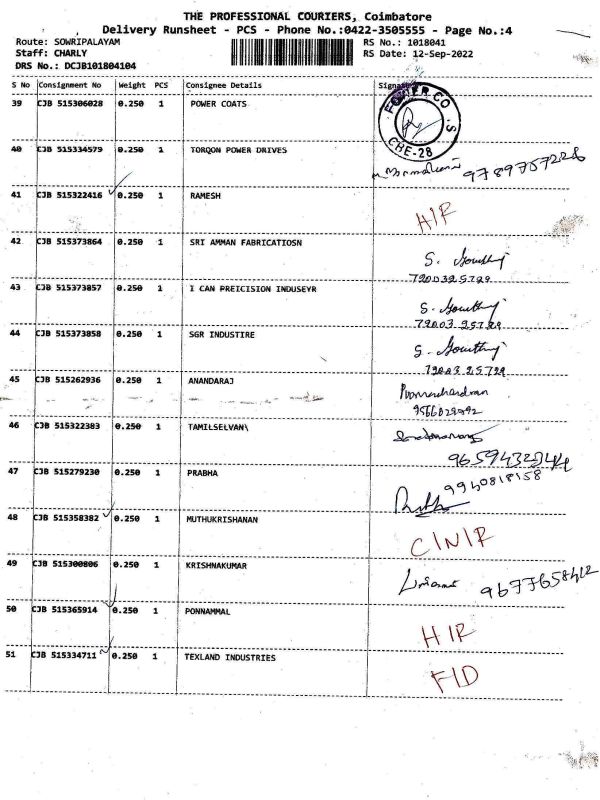 THE PROFESSIONAL COURIERS, Coimbatore
Delivery Runsheet - PCS - Phone No.:0422-3505555 - Page No.:4
Route: SOWRIPALAYAM RS No.: 1018041
Staff: CHARLY RS Date: 12-Sep-2022
DRS No.: DCJB101804104
S No Consignment No Weight PCS Consignee Details
39 CJB 515306028 0.250 1 POWER COATS
CHE-28
40 CJB 515334579 0.250 1 TORQON POWER DRIVES
9789757228
41 CJB 515322416 0.250 1 RAMESH H/R
42 CJB 515373864 0.250 1 SRI AMMAN FABRICATIOSN
43 CJB 515373857 0.250 1 I CAN PREICISION INDUSEYR
44 CJB 515373858 0.250 1 SGR INDUSTIRE
45 CJB 515262936 0.250 1 ANANDARAJ
46 CJB 515322383 0.250 1 TAMILSELVAN\
47 CJB 515279230 0.250 1 PRABHA 9940818158
48 CJB 515358382 0.250 1 MUTHUKRISHANAN C/N/R
49 CJB 515300806 0.250 1 KRISHNAKUMAR
50 CJB 515365914 0.250 1 PONNAMMAL H/R
51 CJB 515334711 0.250 1 TEXLAND INDUSTRIES